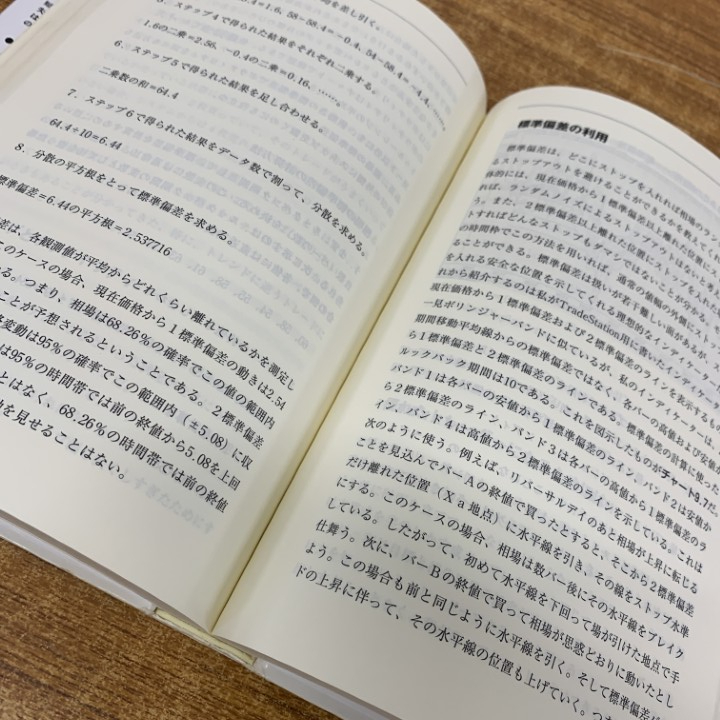 を差し引く。
5．ステップ4で得られた結果をそれぞれ二乗する。
1.6の二乗=2.56、−0.4の二乗=0.16、……。
6．ステップ5で得られた結果を足し合わせる。
二乗数の和=64.4
7．ステップ6で得られた結果をデータ数で割って、分散を求める。
64.4÷10=6.44
8．分散の平方根をとって標準偏差を求める。
標準偏差=6.44の平方根=2.537716
差は、各観測値が平均からどれくらい離れているかを測定し
このケースの場合、現在価格から1標準偏差の動きは2.54
る。つまり、相場は68.26%の確率でこの値の範囲内
ことが予想されるということである。2標準偏差
変動は95%の確率でこの範囲内（±5.08）に収
は95%の時間帯では前の終値から5.08を上回
とはなく、68.26%の時間帯では前の終値
を見せることはない。
標準偏差の利用
標準偏差は、どこにストップを入れれば相場のラン
るストップアウトを避けることができるかを教えてく
体的には、現在価格から1標準偏差以上離れた位置にス
れば、ランダムノイズによるストップアウトはないと考え
う。また、2標準偏差以上離れた位置にストップ
トすればどんなストップもダマシではないことが分かる
の時間枠でこの方法を用いれば、通常の値幅の外側にストップ
を入れる安全な位置を示してくれる理想的なインディケーター
れから紹介するのは私がTradeStation用に書いたインディケー
現在価格から1標準偏差および2標準偏差のラインを表示するもの
一見ボリンジャーバンドに似ているが、私のインディケーターは、
期間移動平均線からの標準偏差ではなく、各バーの高値および安値
ら1標準偏差と2標準偏差のラインである。標準偏差の計算に使った
ルックバック期間は10である。これを図示したものがチャート9.7だ。
バンド1は各バーの安値から1標準偏差のライン、バンド2は安値か
ら2標準偏差のライン、バンド3は各バーの高値から1標準偏差のラ
イン、バンド4は高値から2標準偏差のラインを示している。これは
次のように使う。例えば、リバーサルデイのあと相場が上昇に転じる
ことを見込んでバーAの終値で買ったとすると、そこから2標準偏差
だけ離れた位置（Xa地点）に水平線を引き、その線をストップ水準
にする。このケースの場合、相場は数バー後にその水平線をブレイク
している。したがって、初めて水平線を下回って場が引けた地点で手
仕舞う。次に、バーBの終値で買って相場が思惑どおりに動いたとし
よう。この場合も前と同じように水平線を引く。そして標準偏差
ドの上昇に伴って、その水平線の位置も上げていく。つ